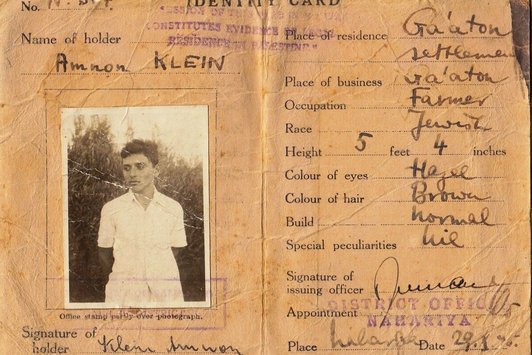 No.
IDENTITY CARD
CONSTITUTES EVIDENCE
RESIDENCE IN PALESTINE"
Name of holder
Amnon KLEIN
Office stamp partly over photograph.
Signature of
holder Klein Amnon
Place of residence Ga'aton
settlemen
Place of business Ga'aton
Occupation Farmer
Race Jewish
Height 5 feet 4 inches
Colour of eyes Hazel
Colour of hair Brown
Build normal
Special peculiarities nil
Signature of
issuing officer
Appointment
DISTRICT OFFICE
NAHARIYA
Place Date